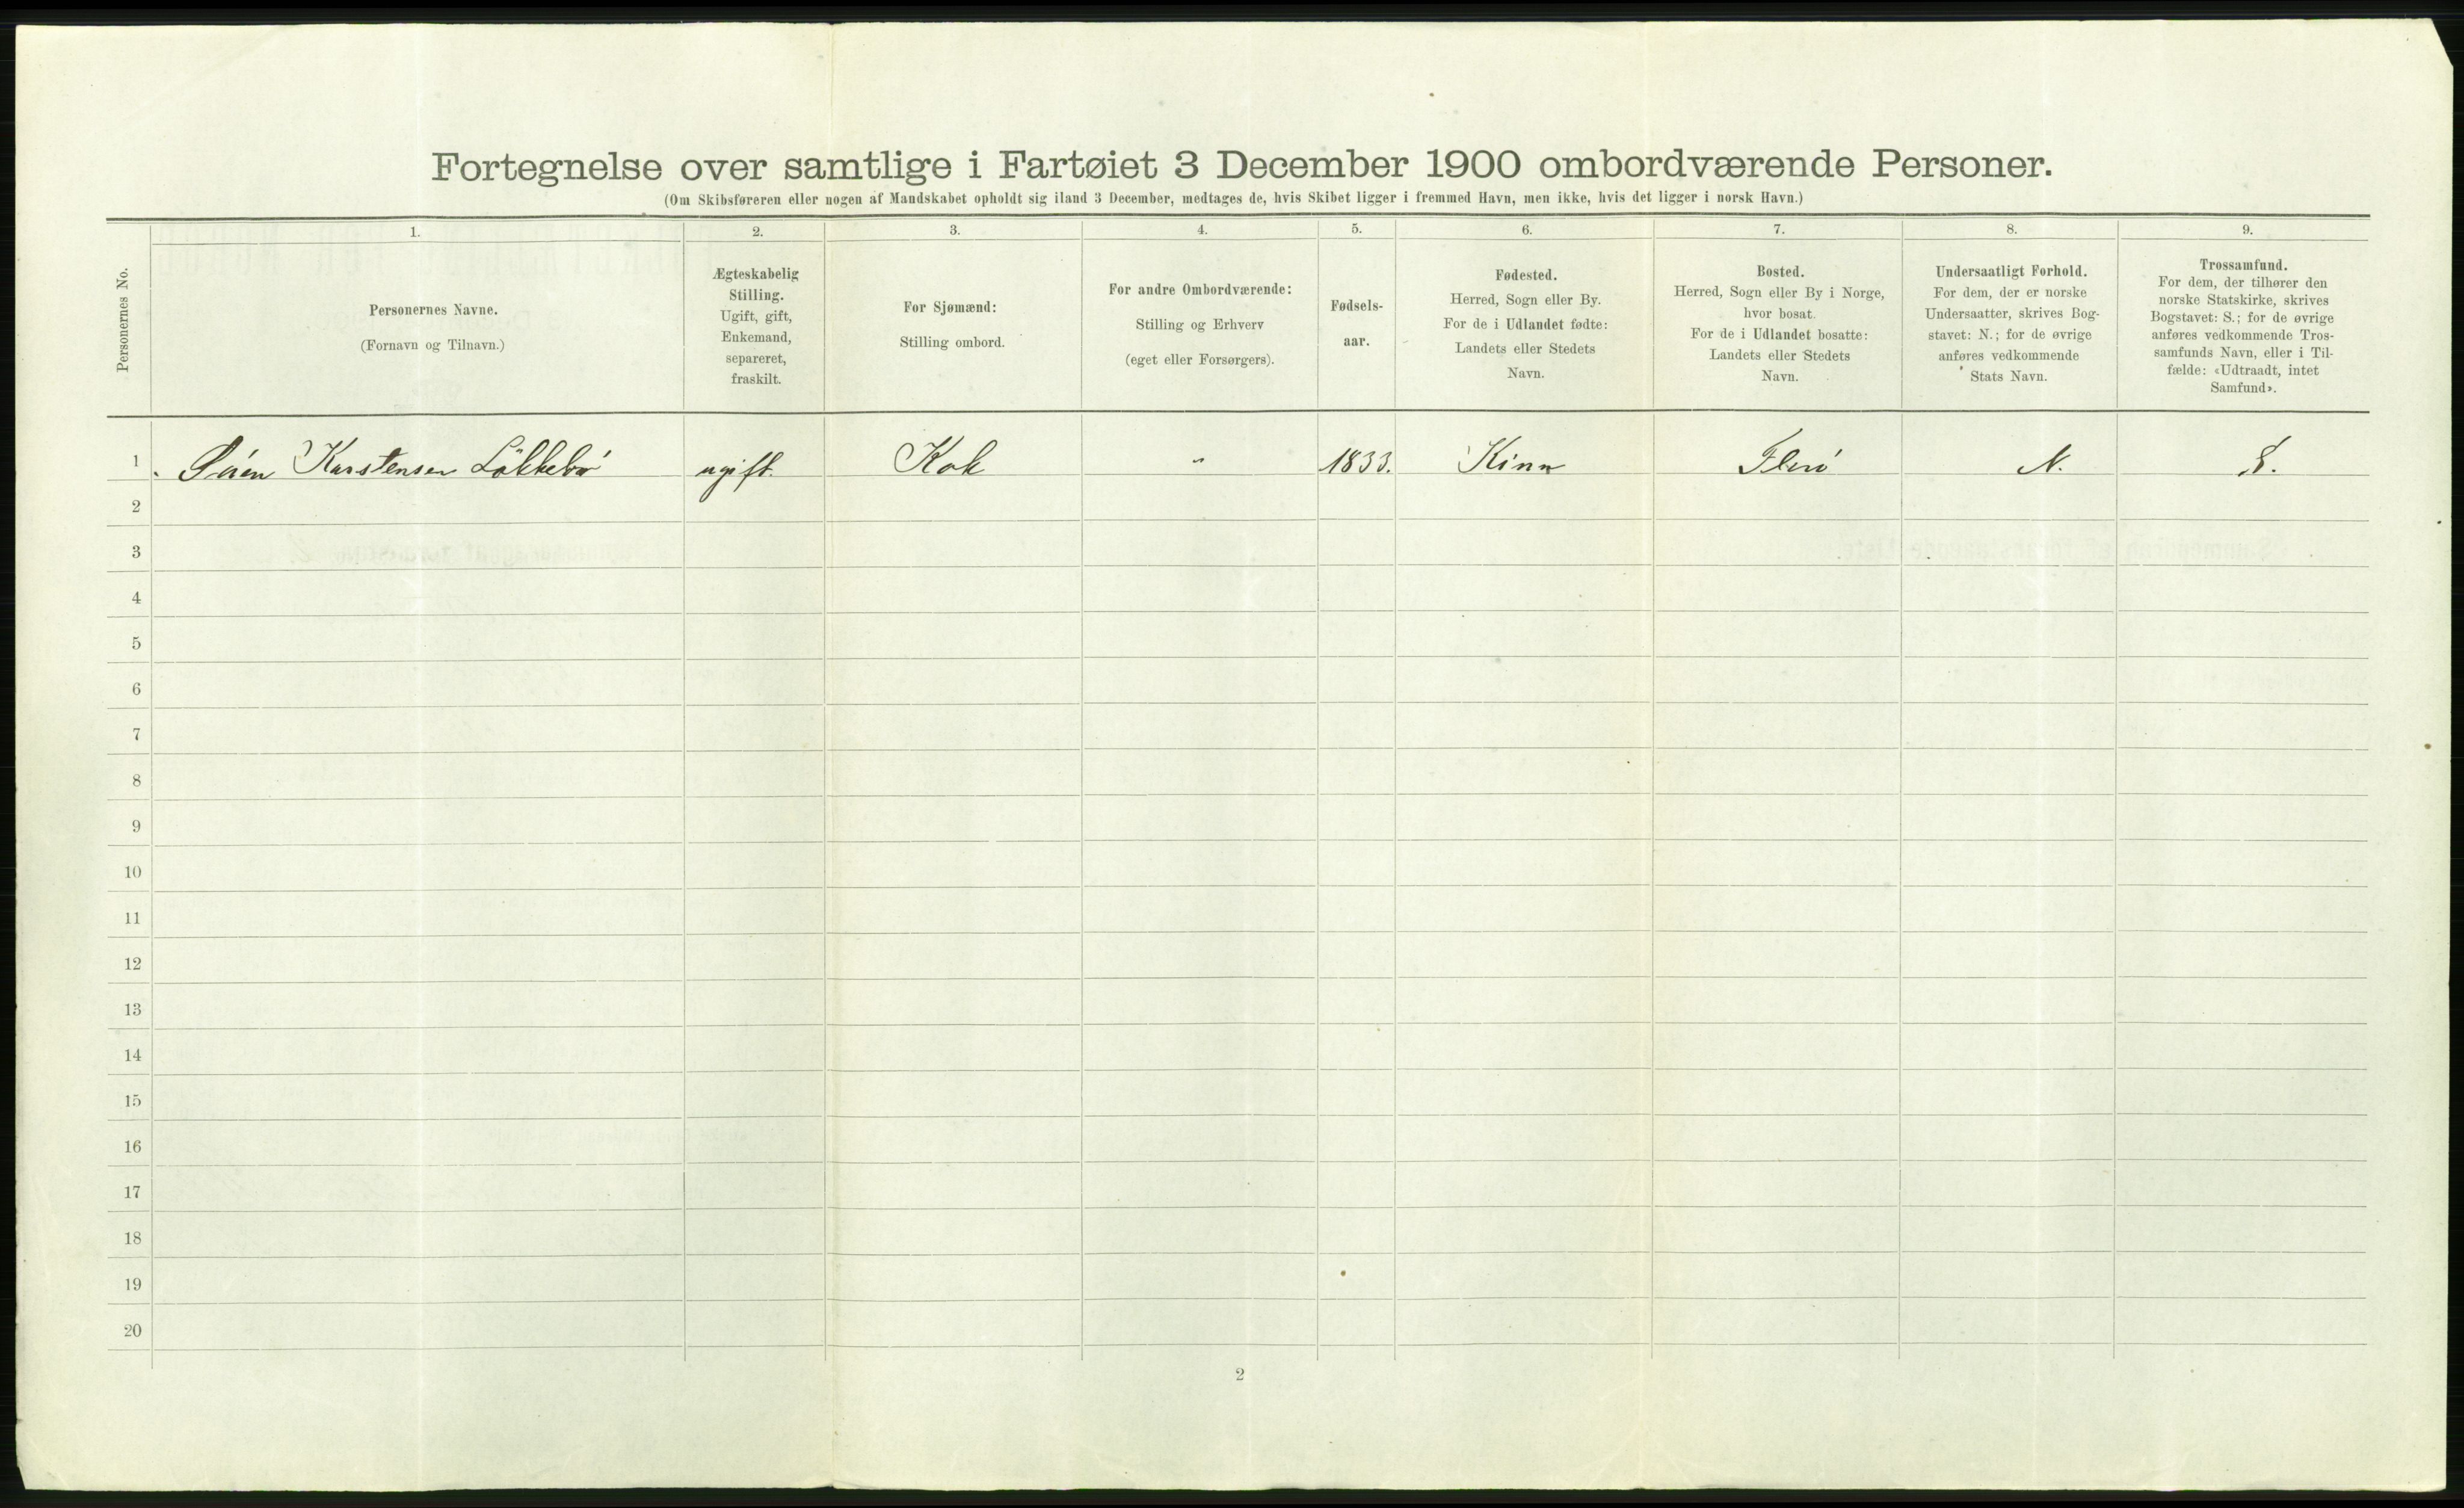 Fortegnelse over samtlige i Fartøiet 3 December 1900 ombordværende Personer.
(Om Skibsføreren eller nogen af Mandskabet opholdt sig iland 3 December, medtages de, hvis Skibet ligger i fremmed Havn, men ikke, hvis det ligger i norsk Havn.)
Personernes No.
1.
Personernes Navne.
(Fornavn og Tilnavn.)
2.
Ægteskabelig
Stilling.
Ugift, gift,
Enkemand,
separeret,
fraskilt.
3.
For Sjømænd:
Stilling ombord.
4.
For andre Ombordværende:
Stilling og Erhverv
(eget eller Forsørgers).
5.
Fødsels-
aar.
6.
Fødested.
Herred, Sogn eller By.
For de i Udlandet fødte:
Landets eller Stedets
Navn.
7.
Bosted.
Herred, Sogn eller By i Norge,
hvor bosat.
For de i Udlandet bosatte:
Landets eller Stedets
Navn.
8.
Undersaatligt Forhold.
For dem, der er norske
Undersaatter, skrives Bog-
stavet: N.; for de øvrige
anføres vedkommende
Stats Navn.
9.
Trossamfund.
For dem, der tilhører den
norske Statskirke, skrives
Bogstavet: S.; for de øvrige
anføres vedkommende Tros-
samfunds Navn, eller i Til-
fælde: «Udtraadt, intet
Samfund».
1 Karstensen Lökkebö ugift. Kok " 1833. Kinn Florö N. S.
2
3
4
5
6
7
8
9
10
11
12
13
14
15
16
17
18
19
20
2